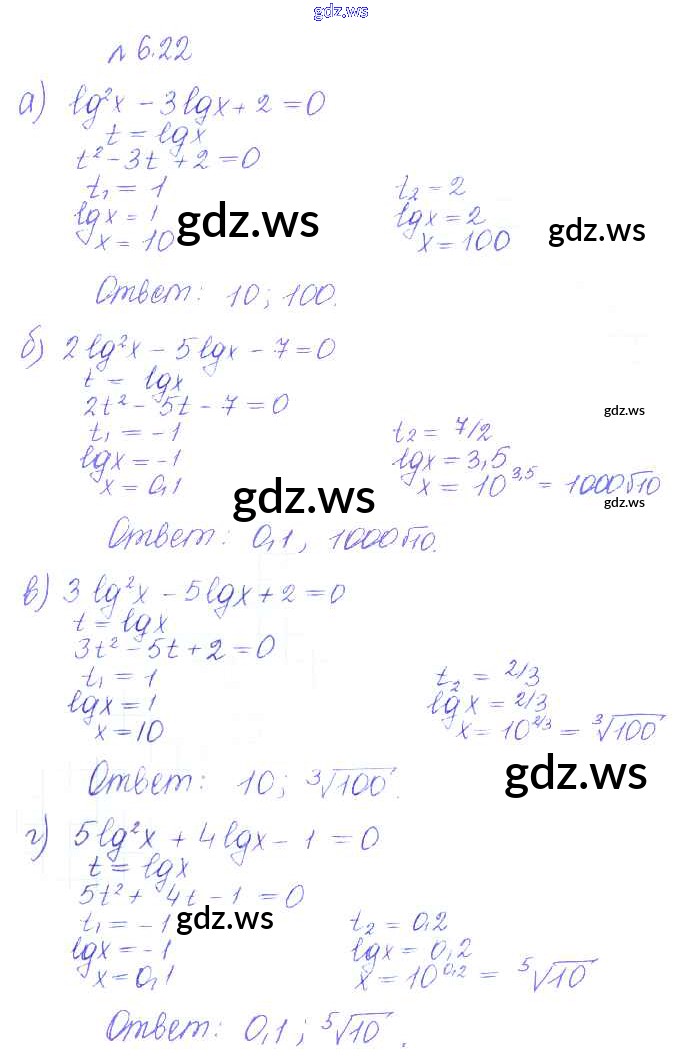 gdz.ws
№ 6.22
а) lg²x − 3lgx + 2 = 0
t = lgx
t² − 3t + 2 = 0
t₁ = 1 t₂ = 2
lgx = 1 gdz.ws lgx = 2 gdz.ws
x = 10 x = 100
Ответ: 10; 100.
б) 2lg²x − 5lgx − 7 = 0
t = lgx
2t² − 5t − 7 = 0 gdz.ws
t₁ = −1 t₂ = 7/2
lgx = −1 lgx = 3,5
x = 0,1 gdz.ws x = 10^3,5 = 1000√10 gdz.ws
Ответ: 0,1, 1000√10.
в) 3lg²x − 5lgx + 2 = 0
t = lgx
3t² − 5t + 2 = 0
t₁ = 1 t₂ = 2/3
lgx = 1 lgx = 2/3
x = 10 x = 10^2/3 = ³√100
gdz.ws
Ответ: 10; ³√100.
г) 5lg²x + 4lgx − 1 = 0
t = lgx
5t² + 4t − 1 = 0
t₁ = −1 gdz.ws t₂ = 0,2
lgx = −1 lgx = 0,2
x = 0,1 x = 10^0,2 = ⁵√10
Ответ: 0,1; ⁵√10.